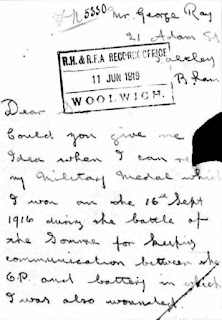 5330
Mr. George Ray
21 Adam St
Saltley
B'ham
R.H. & R.F.A RECORDS OFFICE
11 JUN 1919
WOOLWICH.
Dear
Could you give me
Idea when I can re
my Military Medal which
I won on the 16th Sept
1916 during the battle of
the Somme for keeping
communication between the
O.P. and battery in which
I was also wounded.